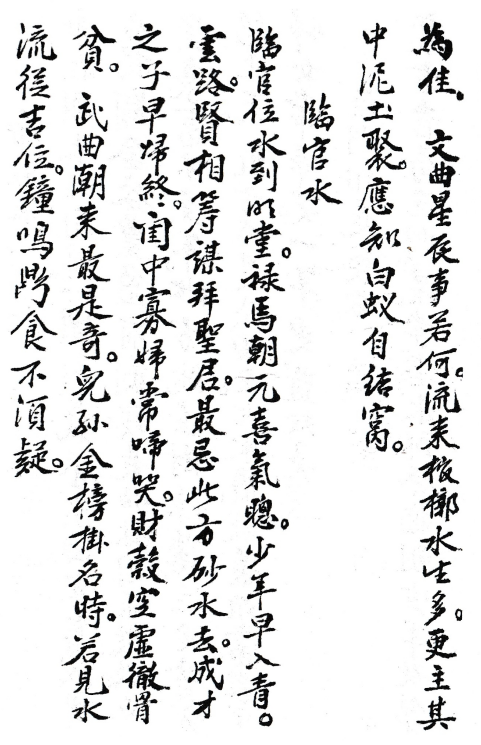 為佳。文曲星辰事若何。流来棺槨水生多。更主其
中泥土聚。應知白蚁自结窝。
臨官水
臨官位水到明堂。禄馬朝元喜氣聰。少年早入青。
雲路。賢相筹謀拜聖君。最忌此方砂水去。成才
之子早归終。闺中寡婦常啼哭。財穀空虛徹骨
貧。武曲潮来最是奇。兒孙金榜掛名時。若見水
流從吉位。鐘鳴鼎食不須疑。